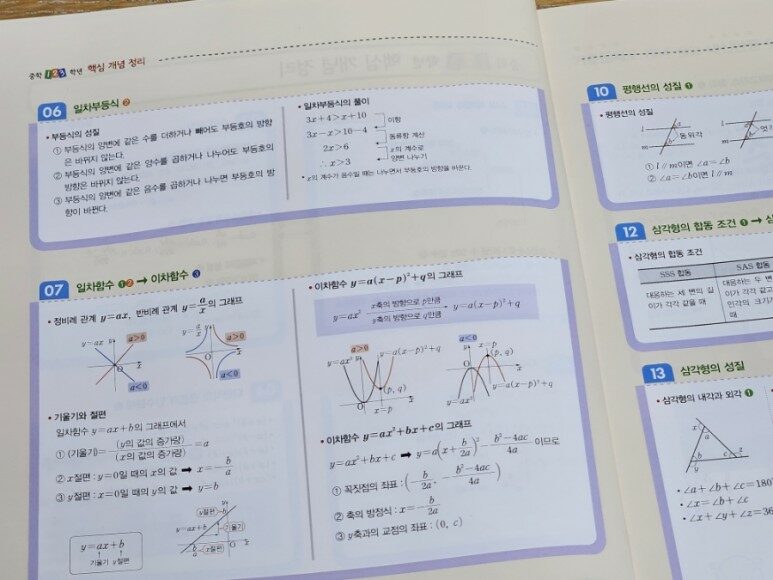 중학 1 2 3 학년 핵심 개념 정리
06 일차부등식 ❷
• 부등식의 성질
① 부등식의 양변에 같은 수를 더하거나 빼어도 부등호의 방향
은 바뀌지 않는다.
② 부등식의 양변에 같은 양수를 곱하거나 나누어도 부등호의
방향은 바뀌지 않는다.
③ 부등식의 양변에 같은 음수를 곱하거나 나누면 부등호의 방
향이 바뀐다.
• 일차부등식의 풀이
3x+4>x+10
이항
3x-x>10-4
동류항 계산
2x>6
x의 계수로
양변 나누기
∴ x>3
• x의 계수가 음수일 때는 나누면서 부등호의 방향을 바꾼다.
07 일차함수 ❶❷ → 이차함수 ❸
• 정비례 관계 y=ax, 반비례 관계 y=a/x의 그래프
y=ax y a>0 O x a<0
y=a/x y a>0 O x a<0
• 기울기와 절편
일차함수 y=ax+b의 그래프에서
① (기울기)=(y의 값의 증가량)/(x의 값의 증가량)=a
② x절편 : y=0일 때의 x의 값 ➡ x=-b/a
③ y절편 : x=0일 때의 y의 값 ➡ y=b
y=ax+b
기울기 y절편
y절편 b y
y=ax+b 기울기
-b/a x절편 O x
• 이차함수 y=a(x-p)²+q의 그래프
y=ax² x축의 방향으로 p만큼 y축의 방향으로 q만큼 → y=a(x-p)²+q
a>0
y=ax² y y=a(x-p)²+q
(p, q)
O x=p x
a<0
y x=p
(p, q)
O x
y=ax² y=a(x-p)²+q
• 이차함수 y=ax²+bx+c의 그래프
y=ax²+bx+c ➡ y=a(x+b/2a)²-b²-4ac/4a 이므로
① 꼭짓점의 좌표 : (-b/2a, -b²-4ac/4a)
② 축의 방정식 : x=-b/2a
③ y축과의 교점의 좌표 : (0, c)
10 평행선의 성질 ❶
• 평행선의 성질
l a
m b 동위각
l
m
① l∥m이면 ∠a=∠b
② ∠a=∠b이면 l∥m
12 삼각형의 합동 조건 ❶ →
• 삼각형의 합동 조건
SSS 합동 SAS 합동
대응하는 세 변의 길
이가 각각 같을 때
대응하는 두 변
이가 각각 같고
인각의 크기
때
13 삼각형의 성질
• 삼각형의 내각과 외각 ❶
x a
b c z
y
• ∠a+∠b+∠c=180
• ∠x=∠b+∠c
• ∠x+∠y+∠z=36